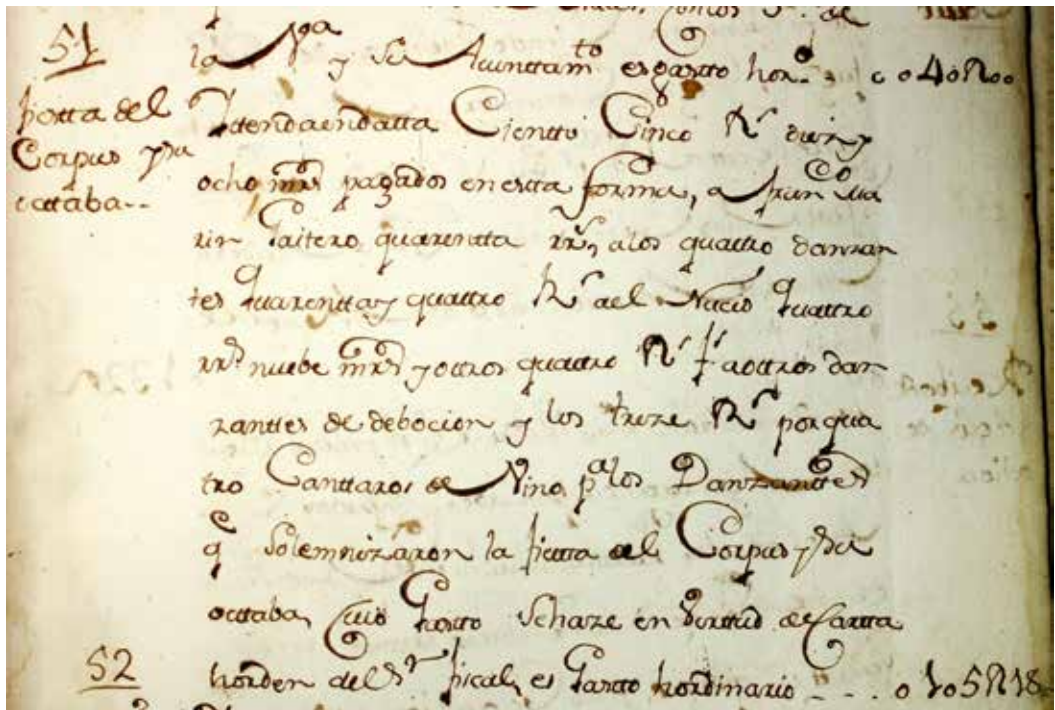 51
la Vª y su Aiunttamtº es gastto horº - 040Rˢ00
fiestta del
Corpus y su
octtaba..
Ytten da en datta Cientto Cinco Rˢ diez y
ocho mrs pagados en estta forma, a Franco Ma
rin Gaitero quarentta rrs, a los quattro danzan
tes quarentta y quattro Rˢ al Nucio quattro
rrs nuebe mrs y ottros quattro Rˢ a ottros dan
zanttes de debocion y los treze Rˢ por qua
tro Canttaros de Vino pª los Danzanttes
q solemnizaron la fiestta del Corpus y su
octtaba, Cuio Gastto se haze en birttud de Cartta
horden del Sr fiscal, es Gastto hordinario - - - . 0105R18
52